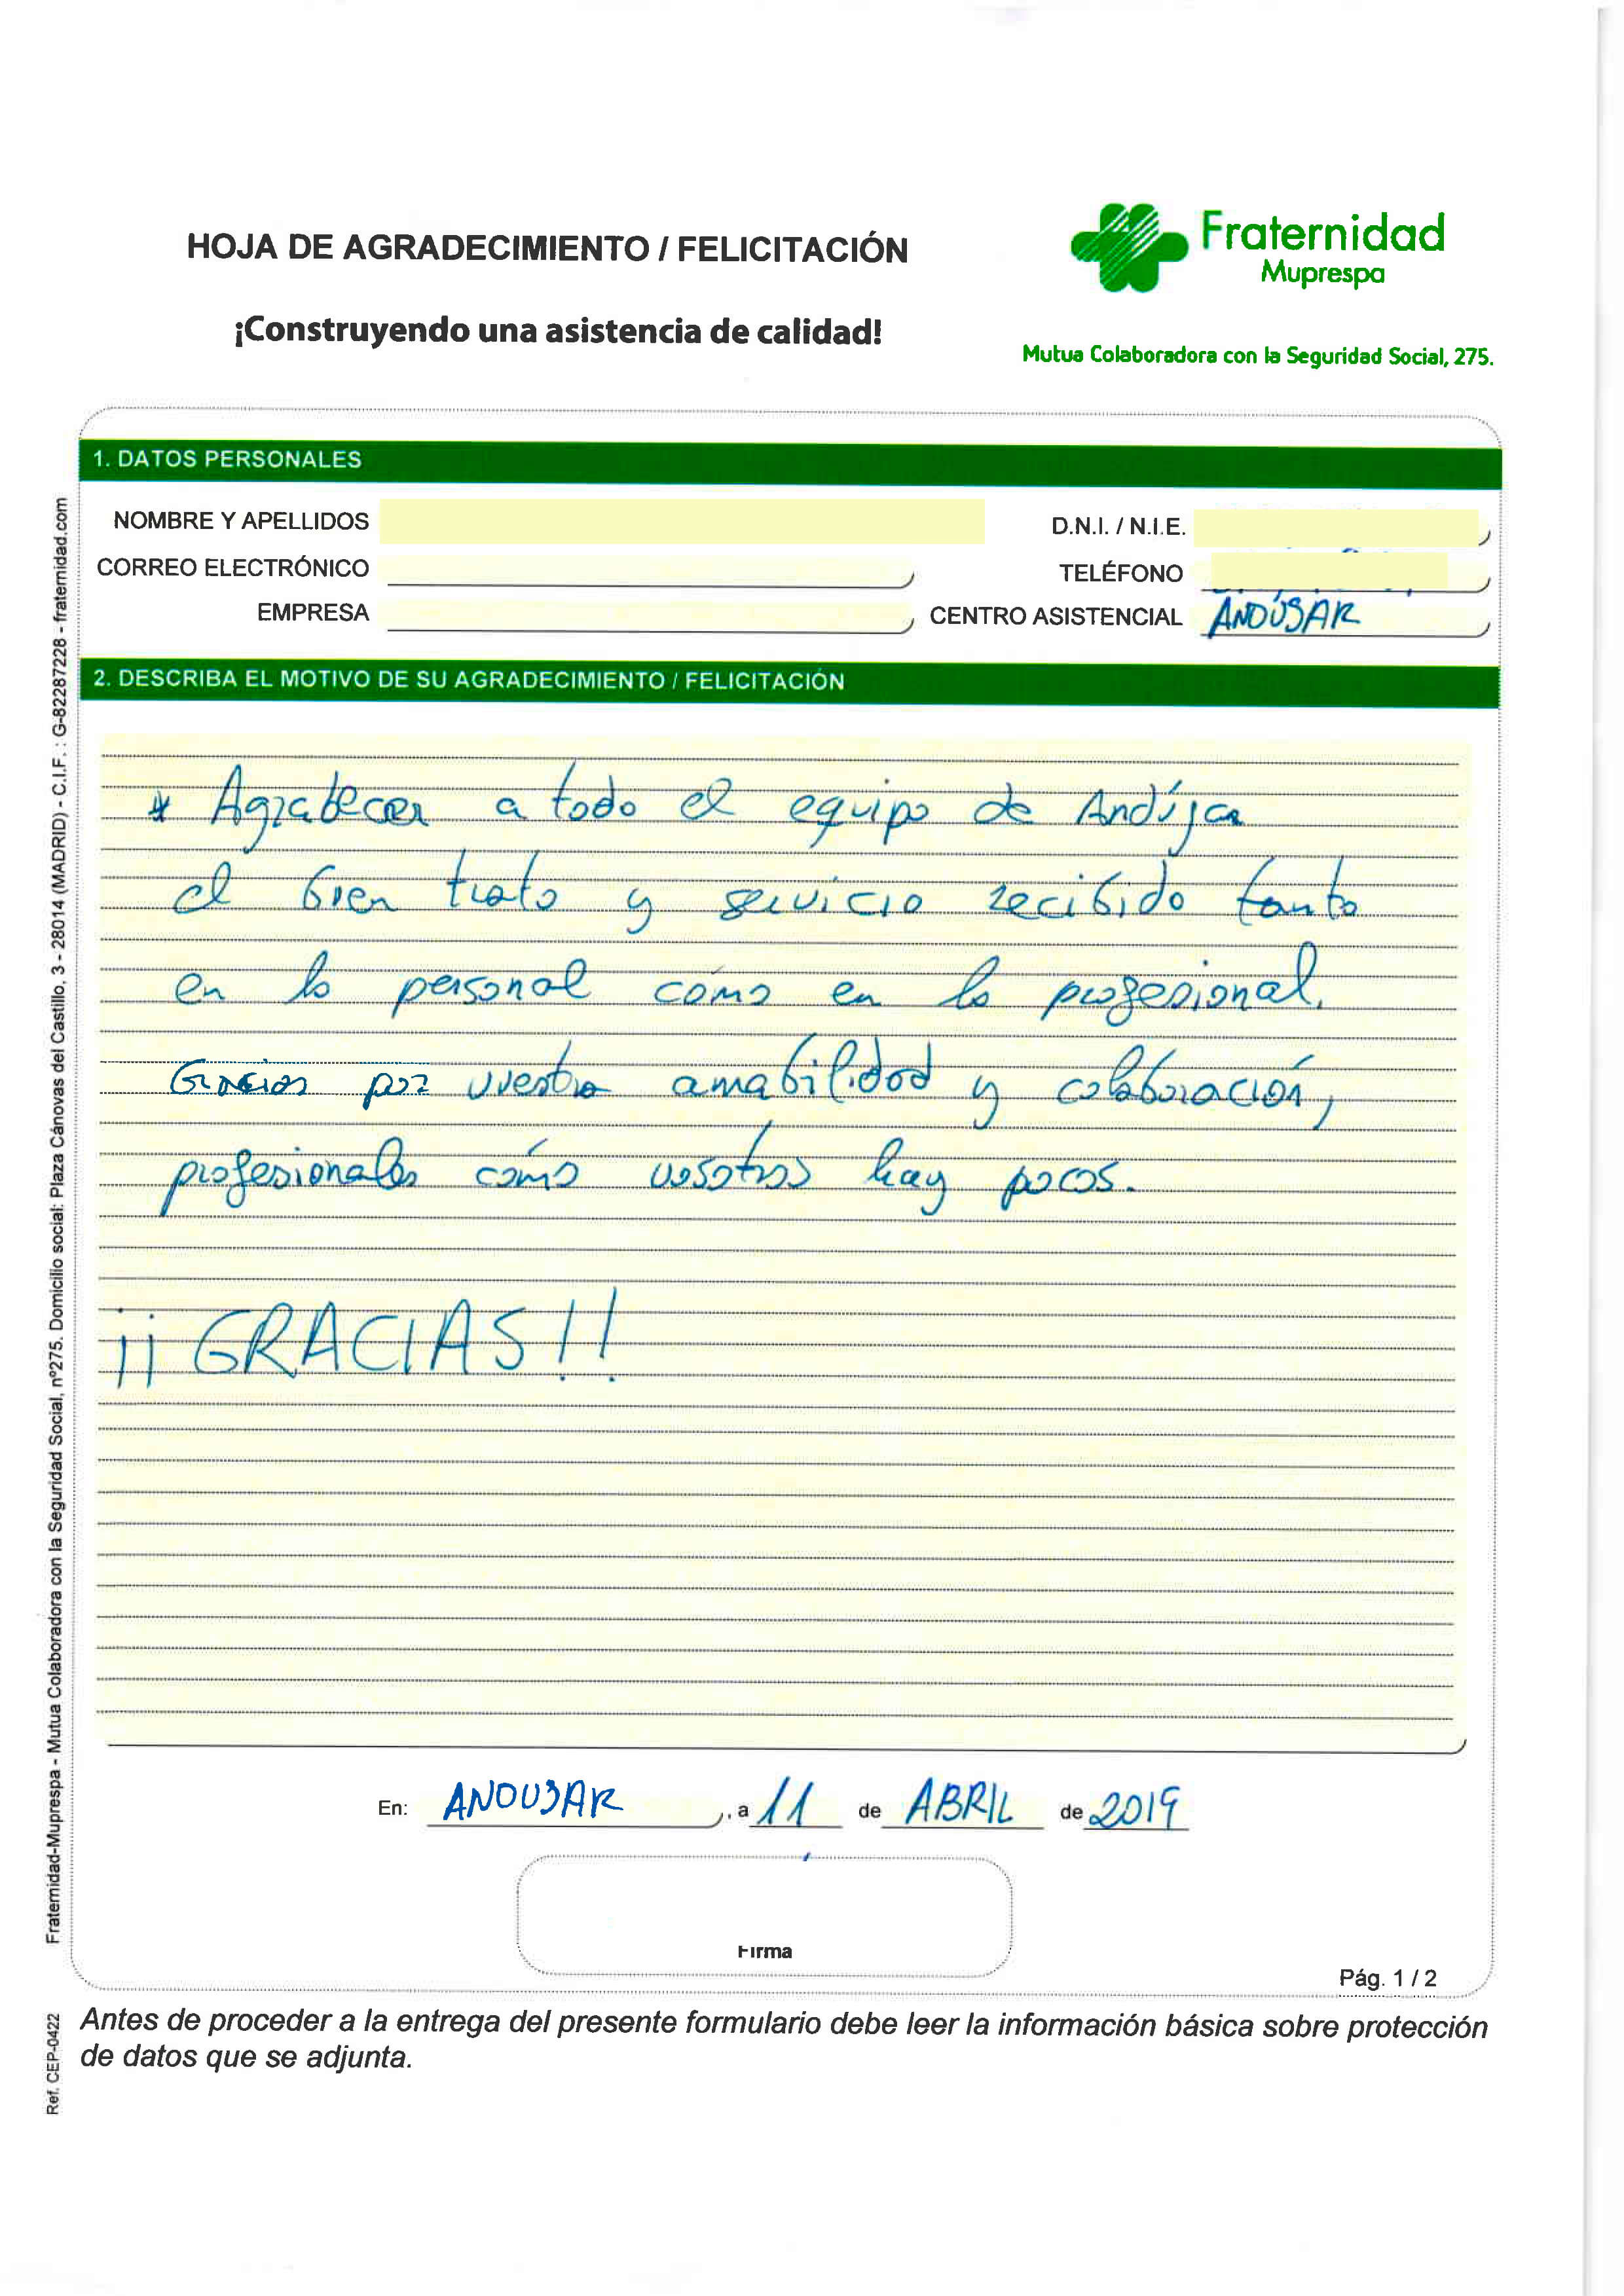 HOJA DE AGRADECIMIENTO / FELICITACIÓN
¡Construyendo una asistencia de calidad!
Fraternidad
Muprespa
Mutua Colaboradora con la Seguridad Social, 275.
1. DATOS PERSONALES
NOMBRE Y APELLIDOS
D.N.I. / N.I.E.
CORREO ELECTRÓNICO
TELÉFONO
EMPRESA
CENTRO ASISTENCIAL ANDÚJAR
2. DESCRIBA EL MOTIVO DE SU AGRADECIMIENTO / FELICITACIÓN
* Agradecer a todo el equipo de Andújar
el buen trato y servicio recibido tanto
en lo personal como en lo profesional.
Gracias por vuestra amabilidad y colaboración,
profesionales cómo vosotros hay pocos.
¡¡GRACIAS!!
En: ANDUJAR , a 11 de ABRIL de 2019
Firma
Pág. 1 / 2
Antes de proceder a la entrega del presente formulario debe leer la información básica sobre protección
de datos que se adjunta.
Fraternidad-Muprespa - Mutua Colaboradora con la Seguridad Social, nº275. Domicilio social: Plaza Cánovas del Castillo, 3 - 28014 (MADRID) - C.I.F. : G-82287228 - fraternidad.com
Ref. CEP-0422